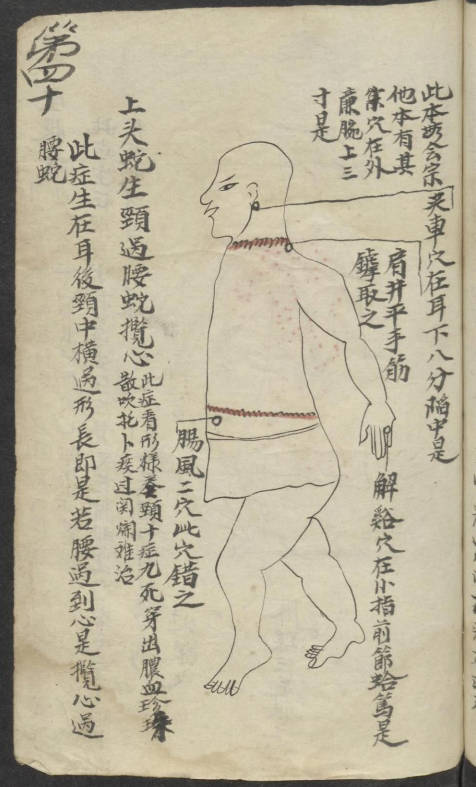 此本無会宗
他本有其
集穴在外
廉腕上三
寸是
夹車穴在耳下八分陷中是
肩井平手筋
罅取之
解谿穴在小指前節蛤篤是
腸風二穴此穴錯之
上头蛇生頸過腰蛇攬心
此症看形樣蚕頸十症九死穿出膿血珍珠
散吹托卜疾过闵爛难治
此症生在耳後頸中横過形長即是若腰過到心是攬心過
腰蛇
第四十